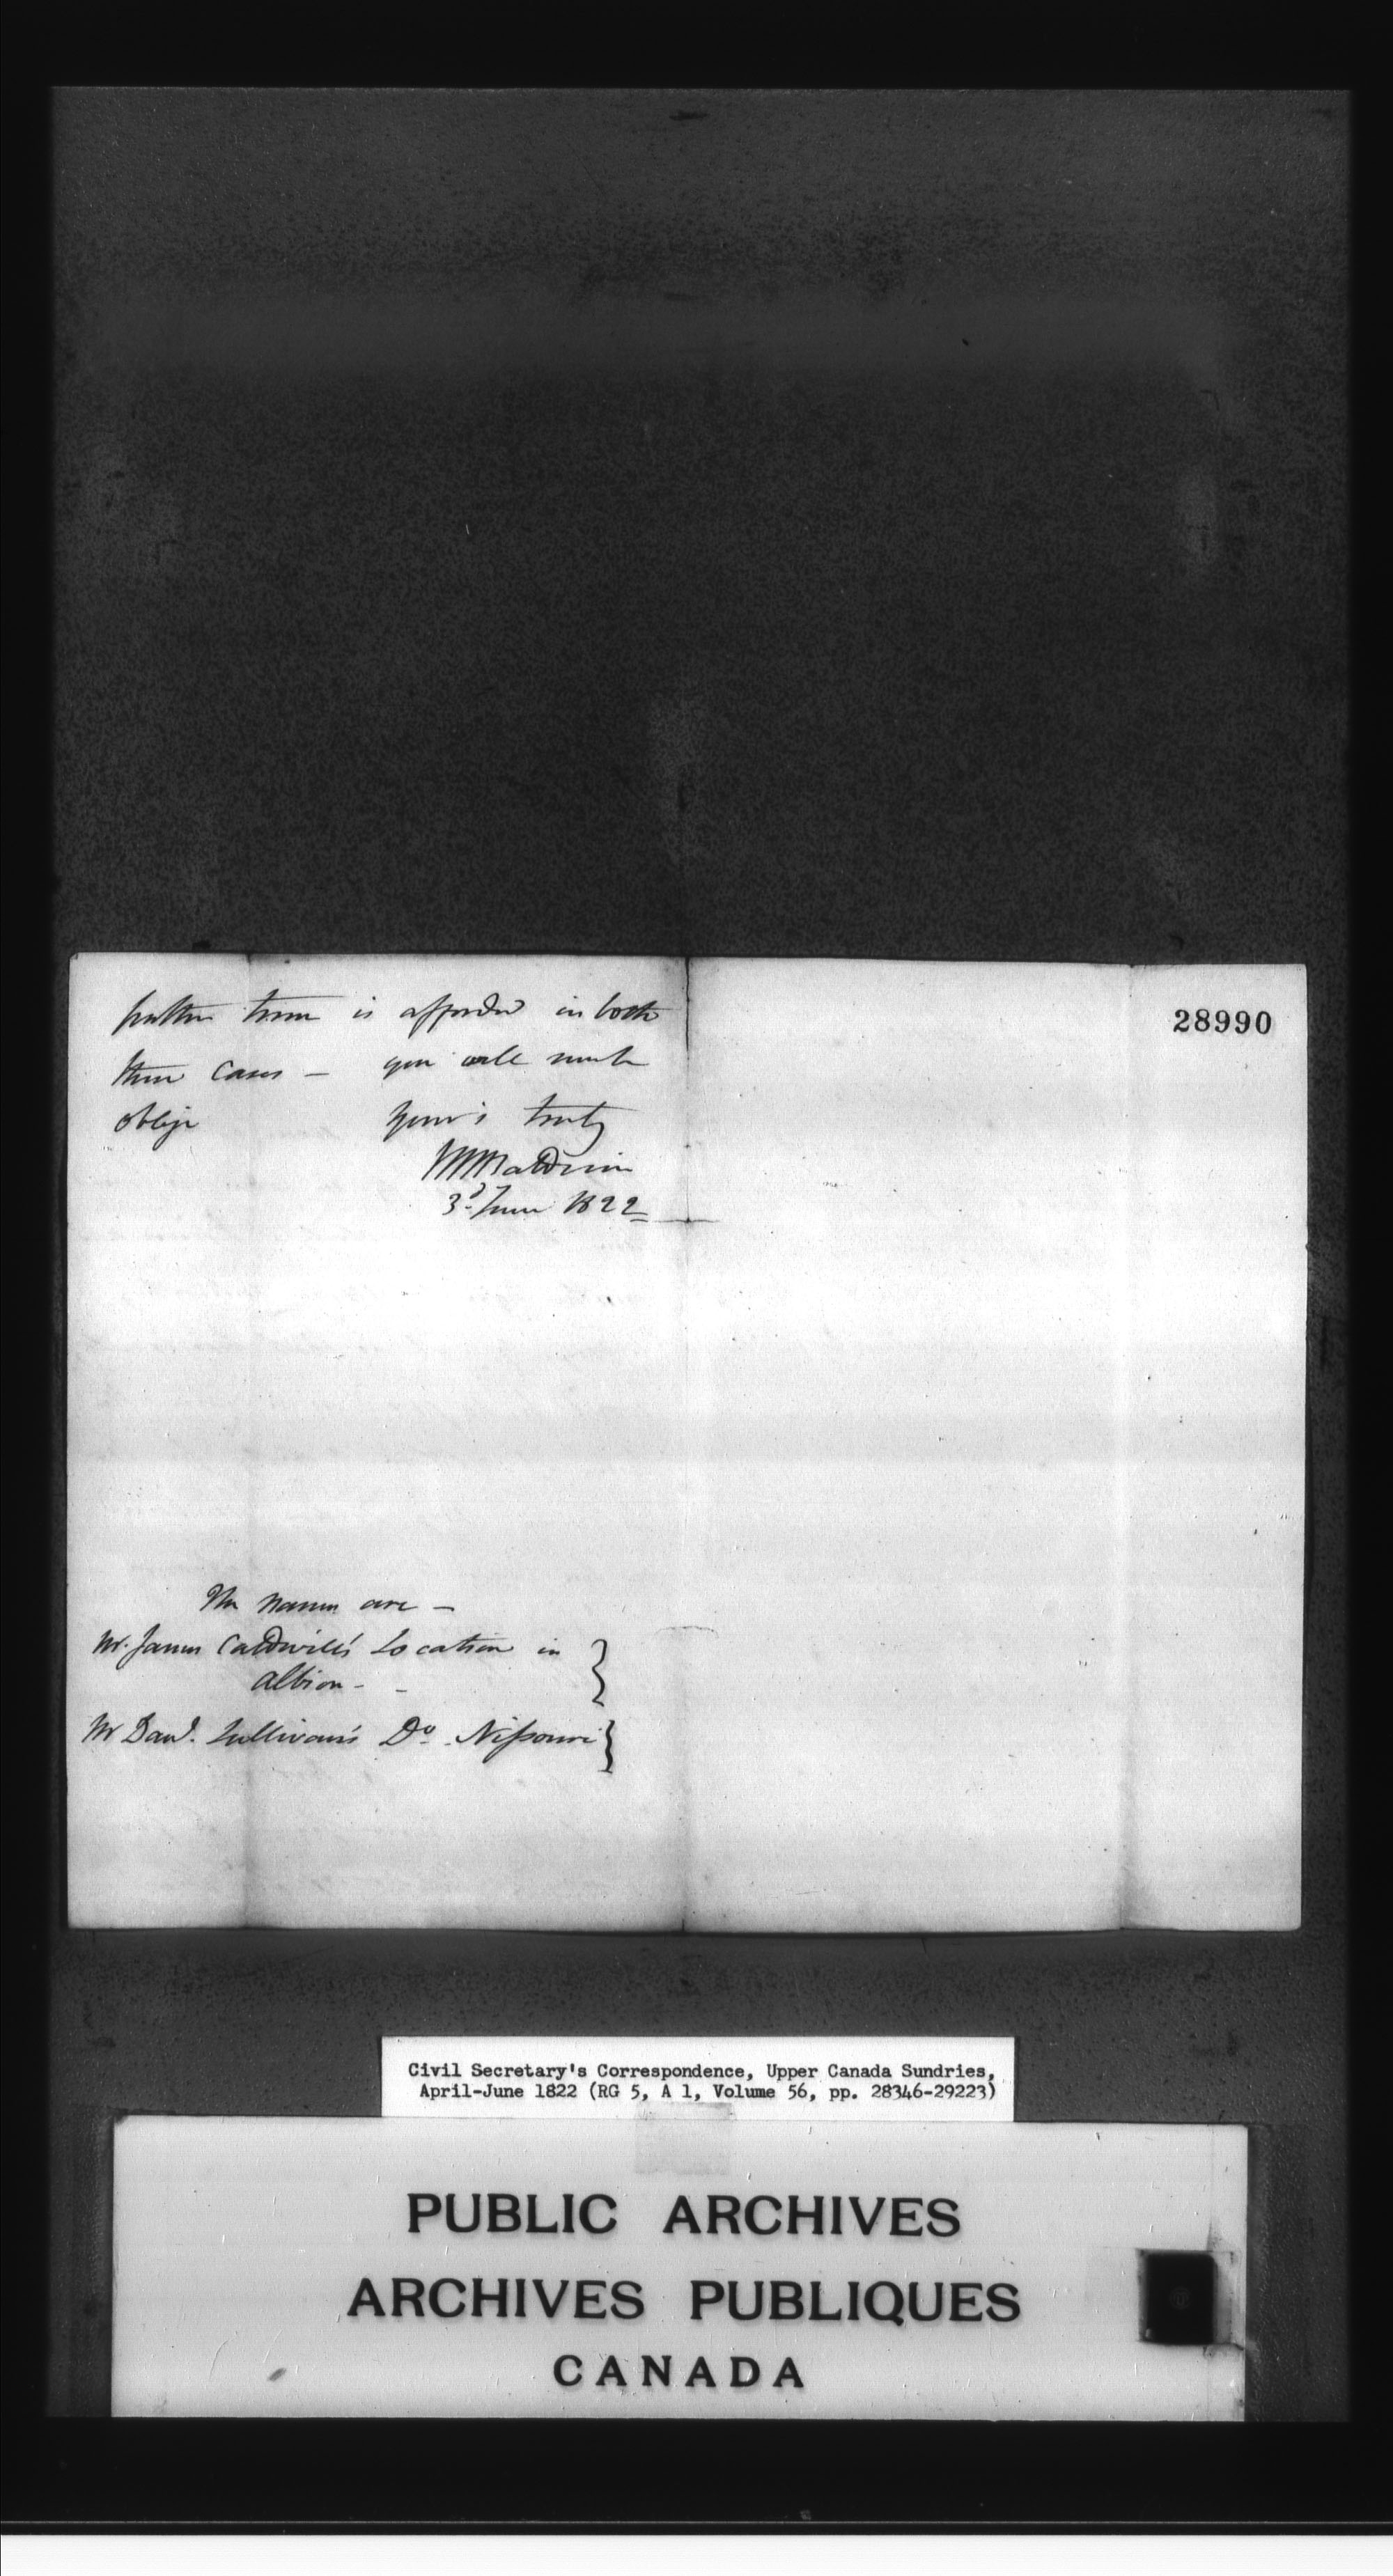 further time is afforded in both
these cases — you will much
oblige Your's truly
WWBaldwin
3d June 1822
28990
The names are —
Mr. James Caldwell's Location in
Albion - -
Mr Danl. Sullivan's Do. Nissouri
Civil Secretary's Correspondence, Upper Canada Sundries,
April-June 1822 (RG 5, A 1, Volume 56, pp. 28346-29223)
PUBLIC ARCHIVES
ARCHIVES PUBLIQUES
CANADA